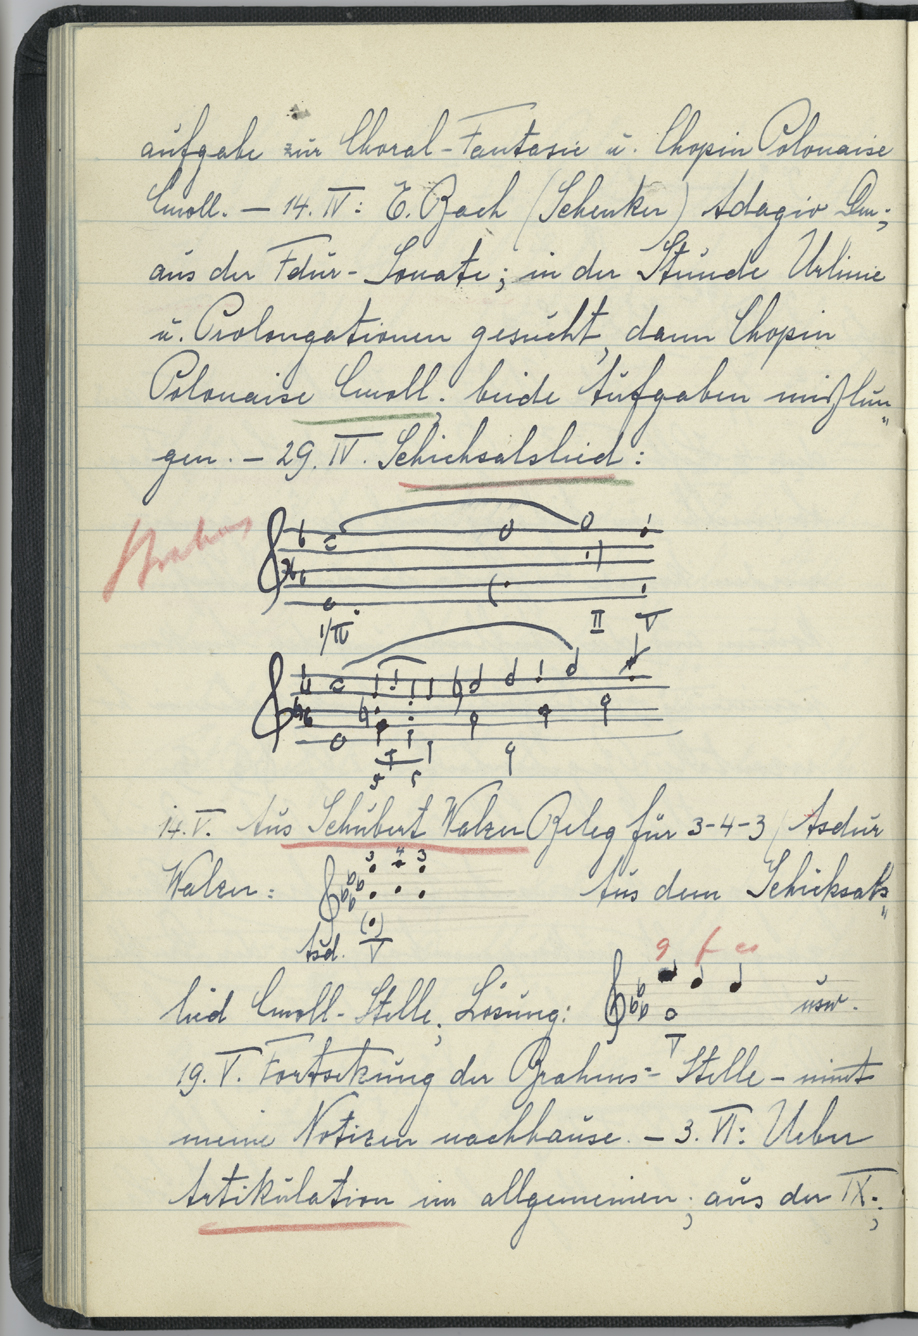 aufgabe zur Choral-Fantasie u. Chopin Polonaise
Cmoll. — 14. IV: E. Bach (Schenker) Adagio Dm;
aus der Fdur-Sonate; in der Stunde Urlinie
u. Prolongationen gesucht, dann Chopin
Polonaise Cmoll; beide Aufgaben mißlun„
gen. — 29. IV. Schicksalslied:
Brahms
II V
14. V. Aus Schubert Walzer Beleg für 3-4-3 (Asdur
3 4 3
Walzer: Aus dem Schicksals„
Asd. V
g f es
lied Cmoll-Stelle; Lösung: usw.
V
19. V. Fortsetzung der Brahms-Stelle – nimmt
meine Notizen nachhause. — 3. VI: Ueber
Artikulation im allgemeinen; aus der IX.;